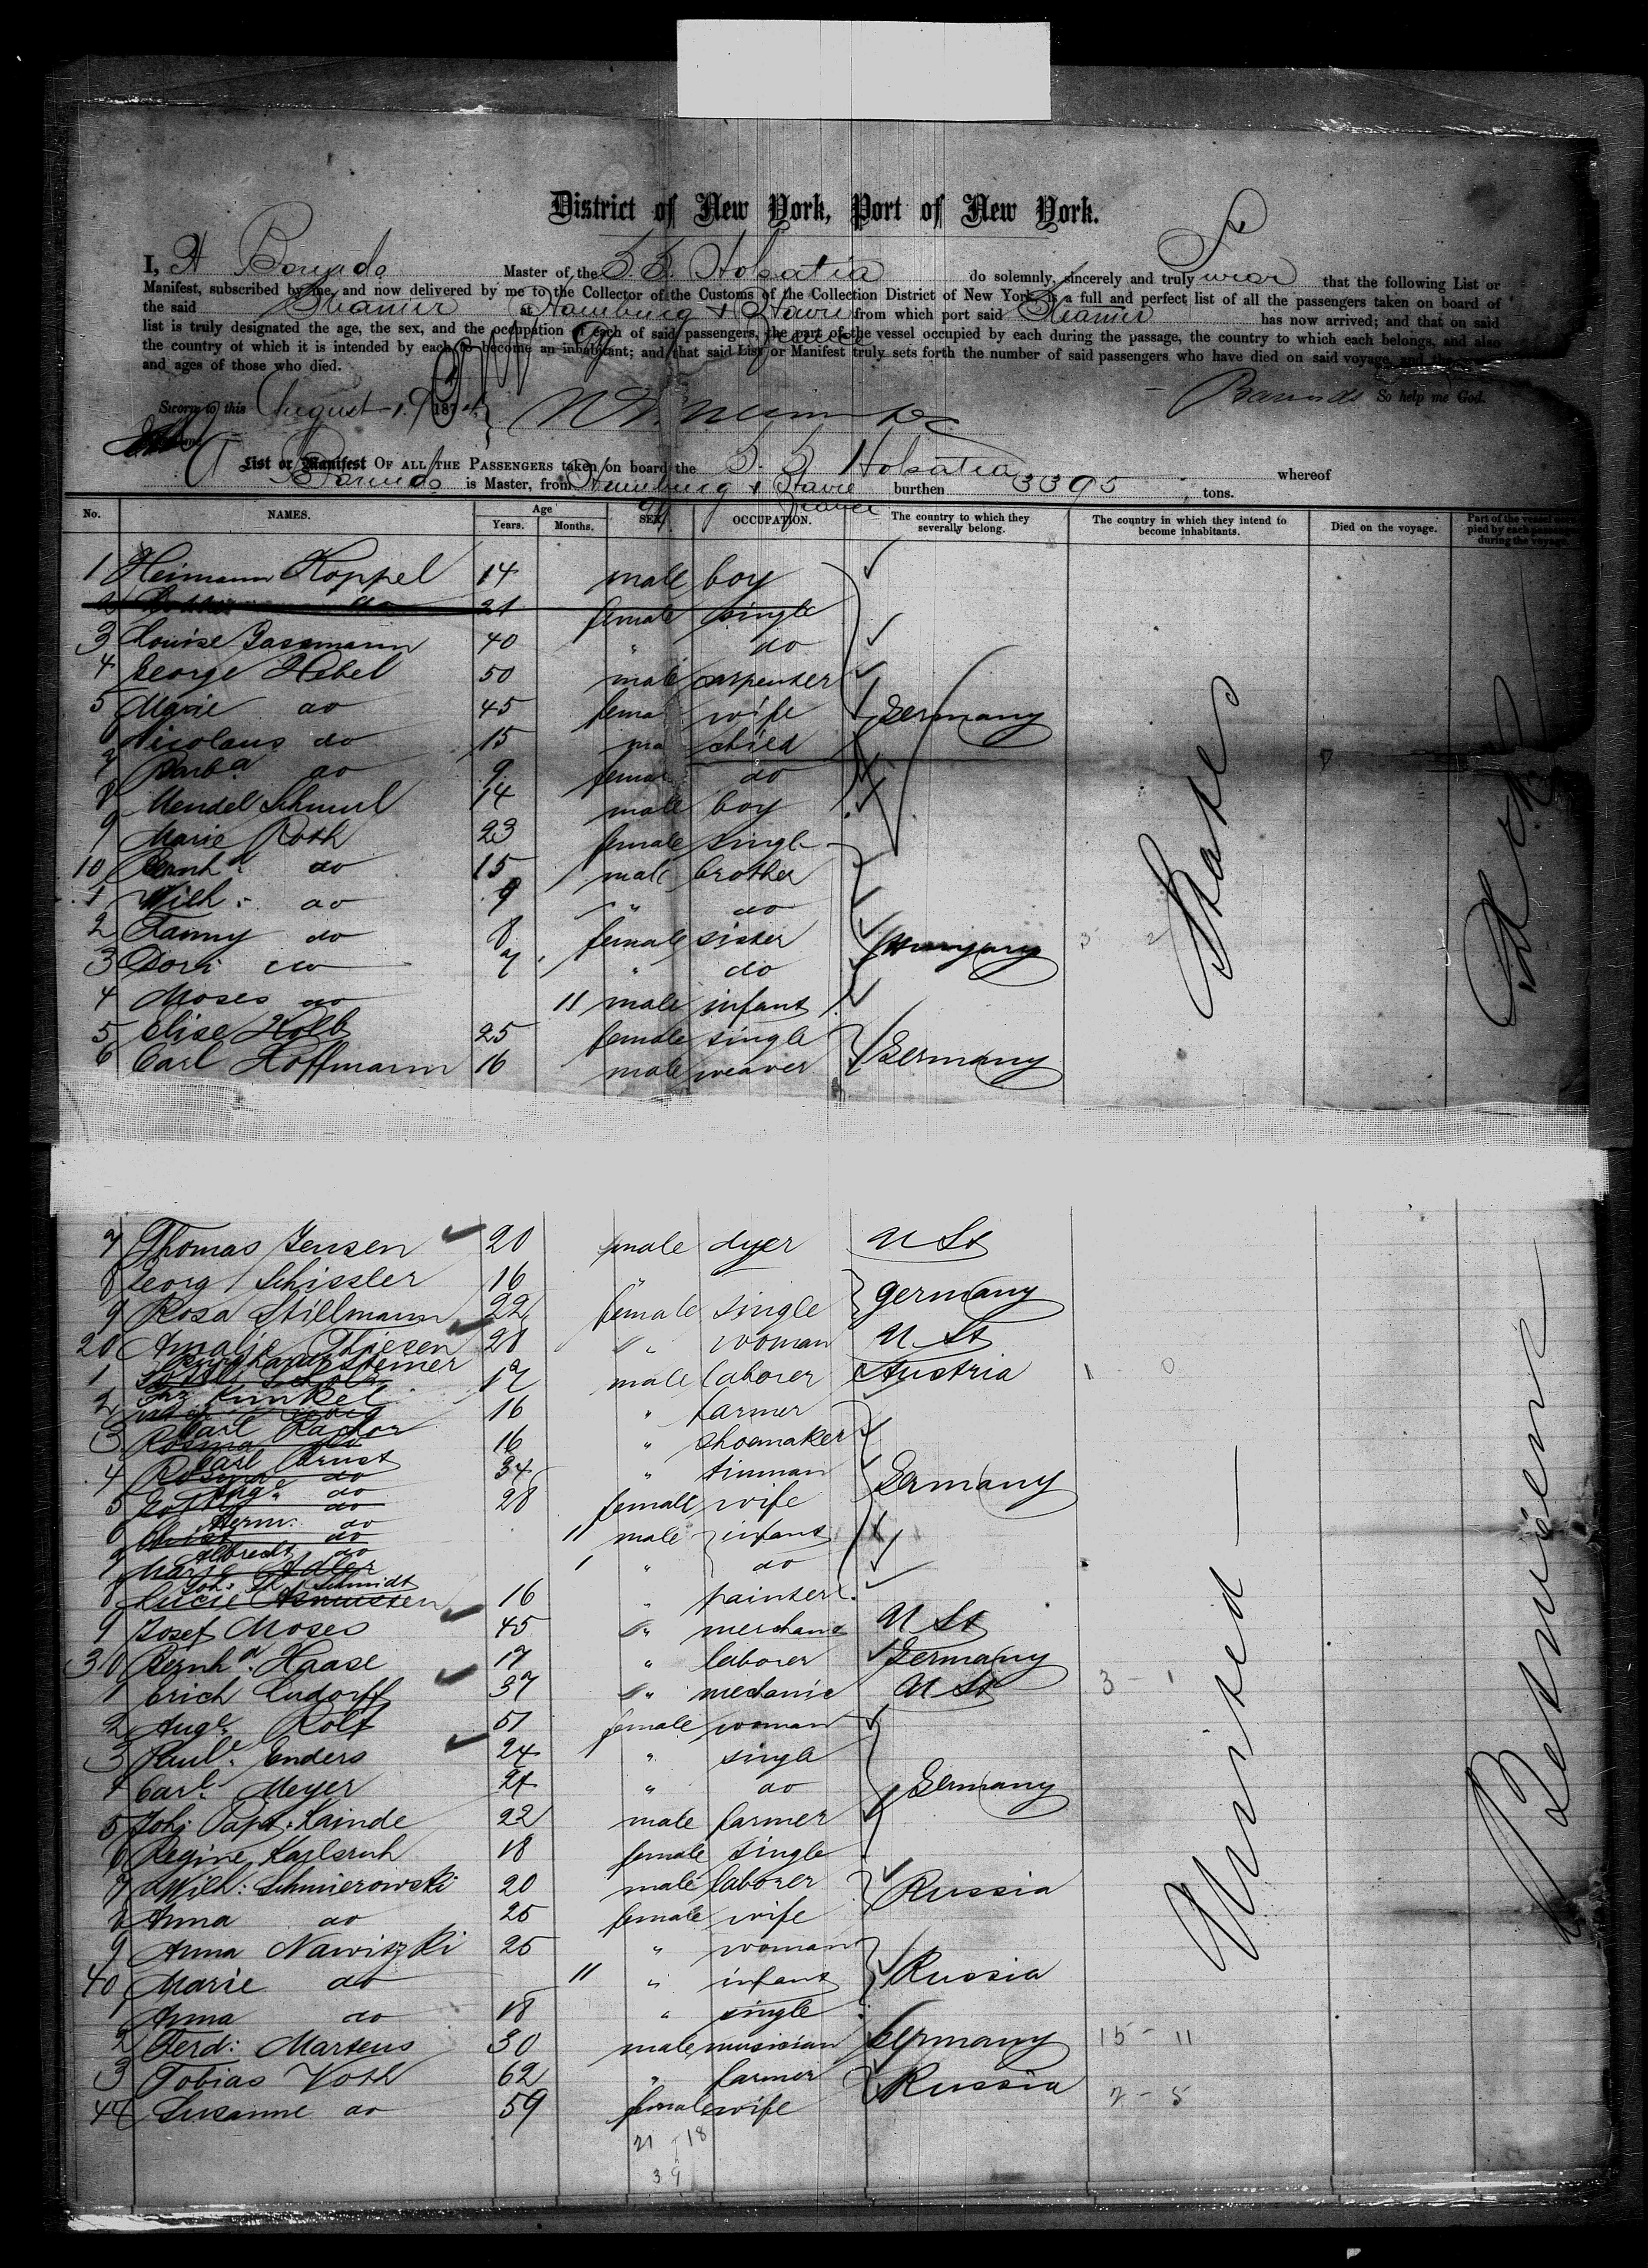 District of New York, Port of New York.
I, A Barends Master of the S. S. Holsatia do solemnly, sincerely and truly swear that the following List or
Manifest, subscribed by me, and now delivered by me to the Collector of the Customs of the Collection District of New York, is a full and perfect list of all the passengers taken on board of
the said Steamer at Hamburg & Havre from which port said Steamer has now arrived; and that on said
list is truly designated the age, the sex, and the occupation of each of said passengers, the part of the vessel occupied by each during the passage, the country to which each belongs, and also
the country of which it is intended by each to become an inhabitant; and that said List or Manifest truly sets forth the number of said passengers who have died on said voyage, and the
and ages of those who died.
Barends So help me God.
Sworn to this August 19 187
List or Manifest OF ALL THE PASSENGERS taken on board the S. S Holsatia whereof
Barends is Master, from Hamburg & Havre burthen 3395 tons.
No. NAMES. Age Years. Months. SEX. OCCUPATION. The country to which they severally belong. The country in which they intend to become inhabitants. Died on the voyage. Part of the vessel occupied by each passenger during the voyage.
1 Heimann Koppel 14 male boy
2 do 21 female single
3 Louise Gassmann 40 " do
4 George Hebel 50 male carpenter
5 Marie do 45 fema wife Germany
6 Nicolaus do 15 ma child
7 Barba do 9 femal do
8 Mendel Schmul 14 male boy
9 Marie Roth 23 female single
10 Bernhd do 15 male brother
1 Wilh: do 9 " do
2 Fanny do 8 female sister Hungary
3 Dori do 7 " do
4 Moses do 11 male infant
5 Elise Kolb 25 female single
6 Carl Hoffmann 16 male weaver Germany
7 Thomas Jensen 20 male dyer U St
8 Georg Schissler 16 "
9 Rosa Stillmann 22 female single Germany
20 Amalie Thiesen 28 " woman U St
1 Steiner 17 male laborer Austria
2 Kunkel 16 " farmer
3 Carl 16 " shoemaker
4 Carl Ernst 34 " tinman
5 Auge do 28 female wife Germany
6 Herm: do 11 male infant
7 Albrecht do 1 " do
8 Joh: Schmidt 16 " painter
9 Josef Moses 45 " merchant U St
30 Bernhd Haase 17 " laborer Germany
1 Erich Ludorff 37 " mechanic U St
2 Auge Rolf 51 female woman
3 Paule Enders 24 " single
4 Carl: Meyer 21 " do Germany
5 Joh: Kainde 22 male farmer
6 Regine Karlsruh 18 female single
7 Wilh: Schmierowski 20 male laborer Russia
8 Anna do 25 female wife
9 Anna Nawitzki 25 " woman
40 Marie do 11 " infant Russia
1 Anna do 18 " single
2 Ferd: Martens 30 male musician Germany 15 - 11
3 Tobias Voth 62 " farmer Russia
44 Susanne do 59 female wife 7 - 5
21 18
39
United States